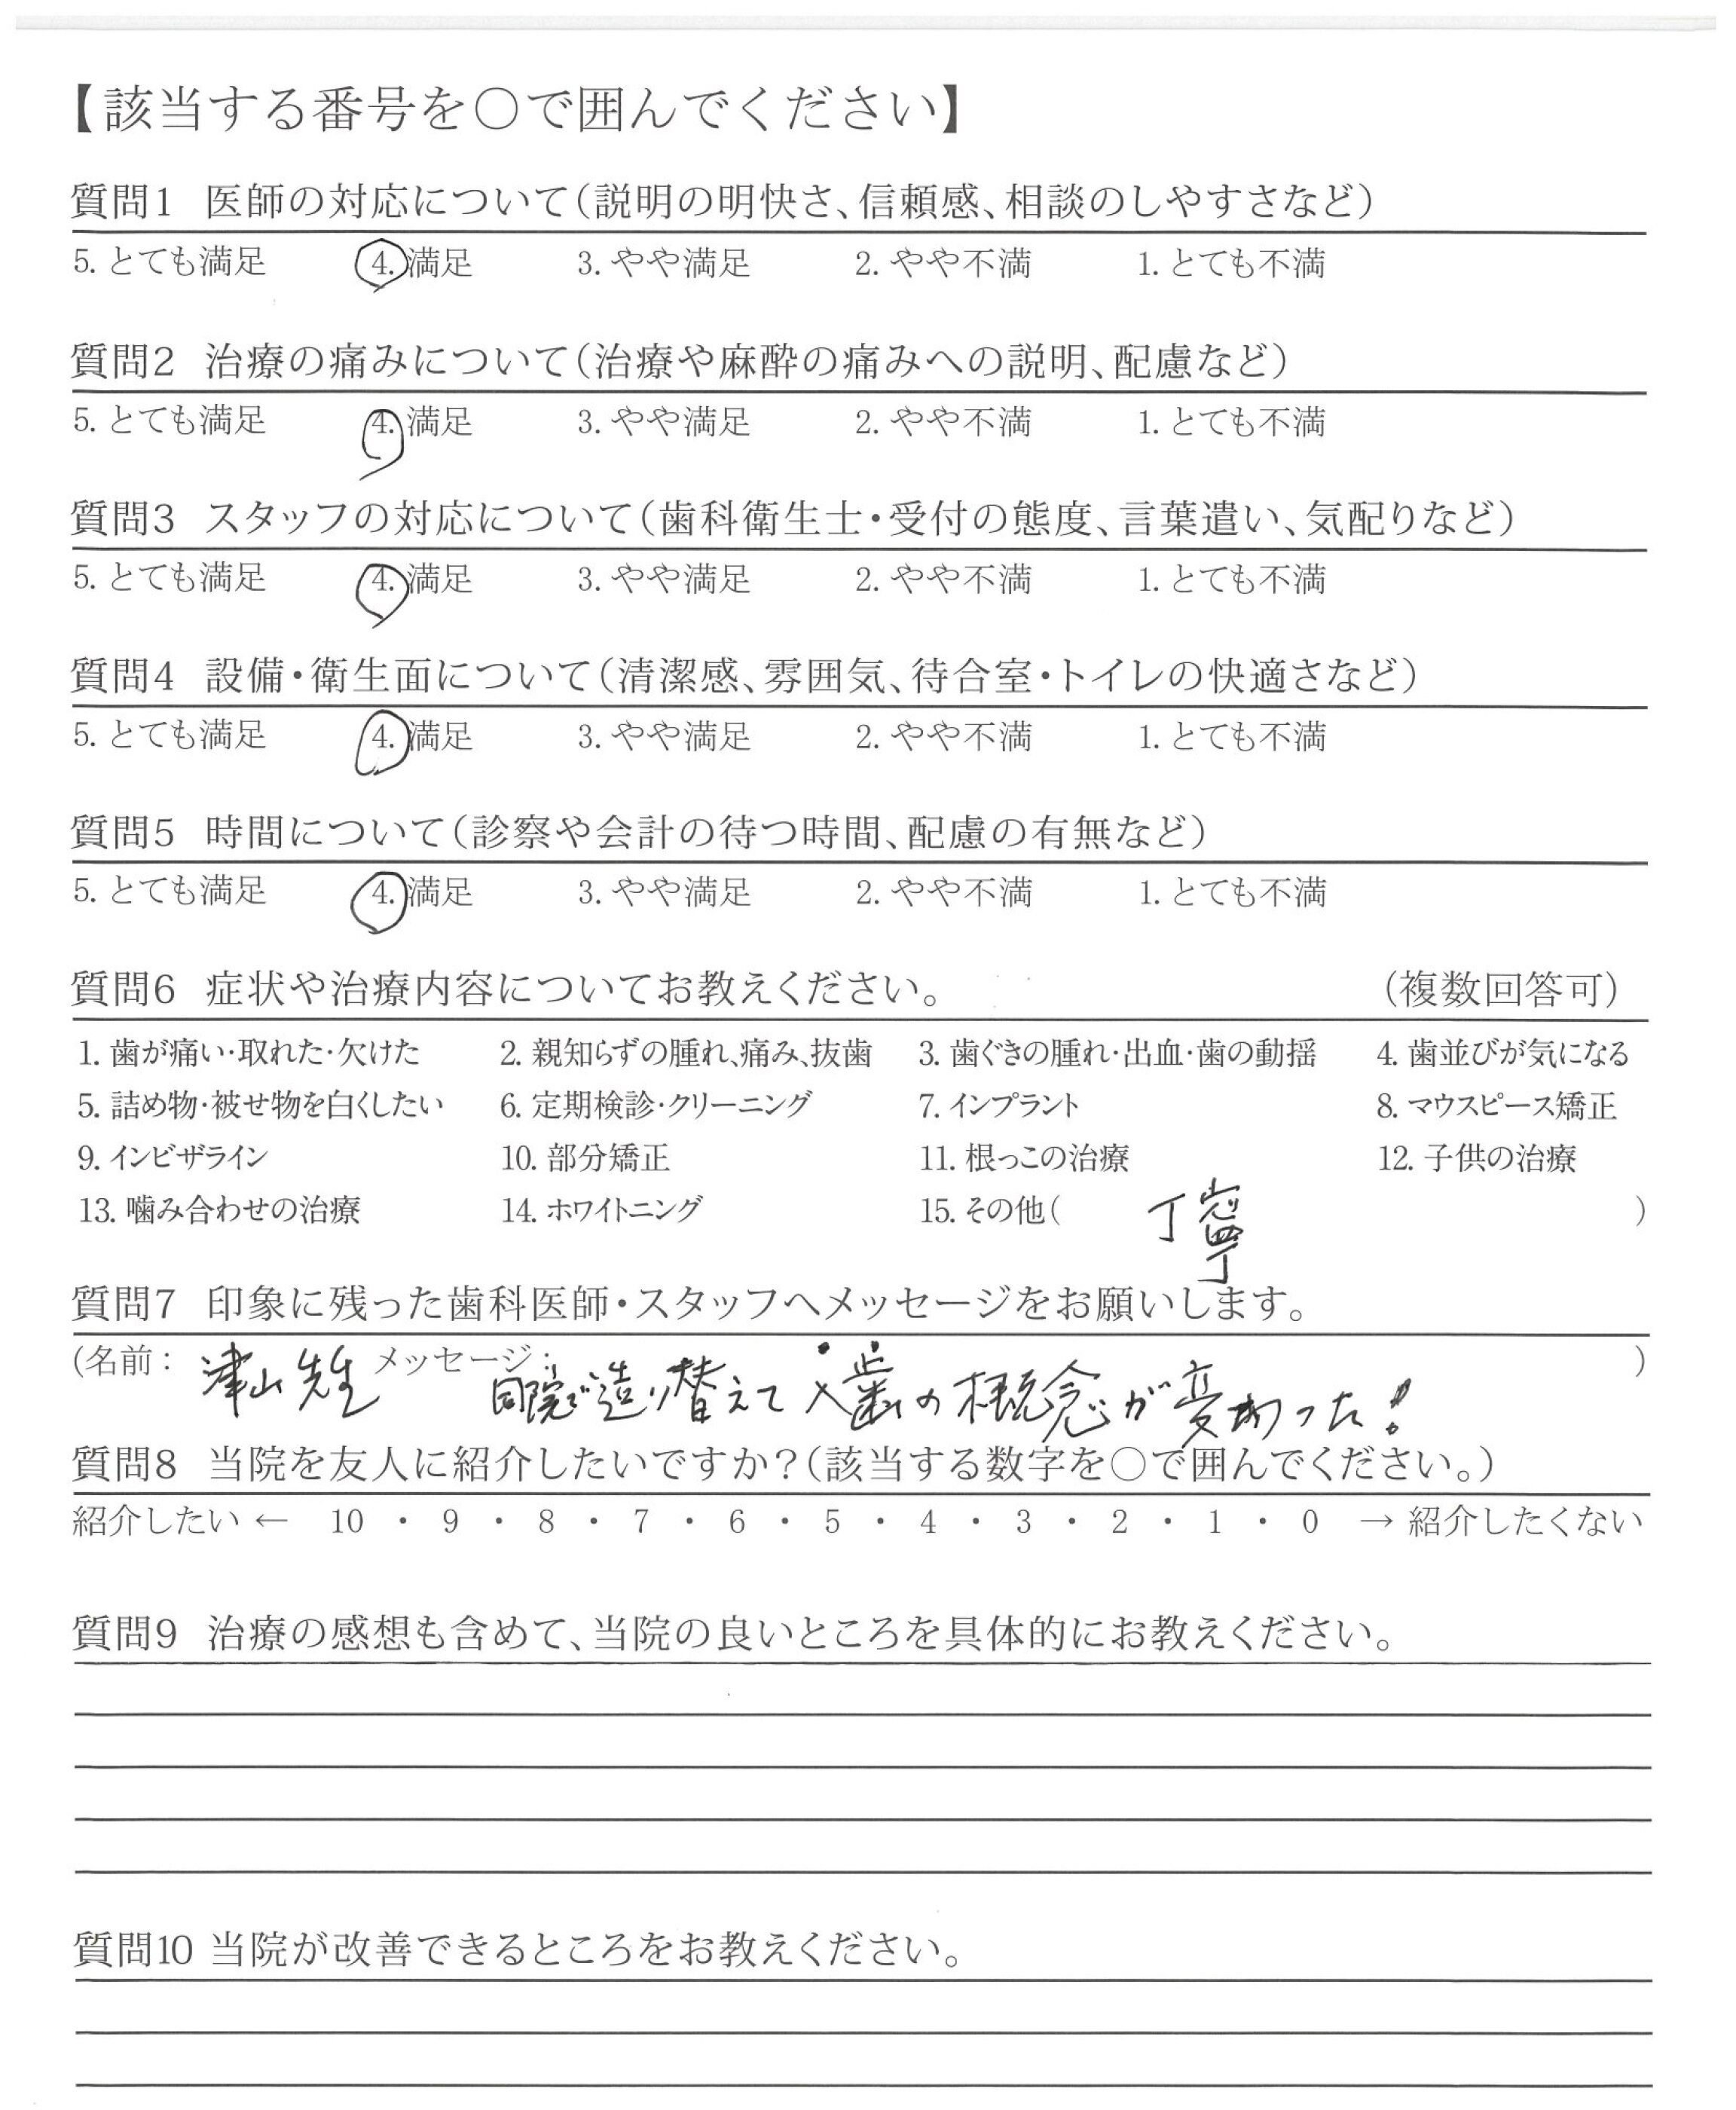 【該当する番号を○で囲んでください】
質問1 医師の対応について(説明の明快さ、信頼感、相談のしやすさなど)
5. とても満足 4. 満足 3. やや満足 2. やや不満 1. とても不満
質問2 治療の痛みについて(治療や麻酔の痛みへの説明、配慮など)
5. とても満足 4. 満足 3. やや満足 2. やや不満 1. とても不満
質問3 スタッフの対応について(歯科衛生士・受付の態度、言葉遣い、気配りなど)
5. とても満足 4. 満足 3. やや満足 2. やや不満 1. とても不満
質問4 設備・衛生面について(清潔感、雰囲気、待合室・トイレの快適さなど)
5. とても満足 4. 満足 3. やや満足 2. やや不満 1. とても不満
質問5 時間について(診察や会計の待つ時間、配慮の有無など)
5. とても満足 4. 満足 3. やや満足 2. やや不満 1. とても不満
質問6 症状や治療内容についてお教えください。 (複数回答可)
1. 歯が痛い・取れた・欠けた 2. 親知らずの腫れ、痛み、抜歯 3. 歯ぐきの腫れ・出血・歯の動揺 4. 歯並びが気になる
5. 詰め物・被せ物を白くしたい 6. 定期検診・クリーニング 7. インプラント 8. マウスピース矯正
9. インビザライン 10. 部分矯正 11. 根っこの治療 12. 子供の治療
13. 噛み合わせの治療 14. ホワイトニング 15. その他( 丁寧 )
質問7 印象に残った歯科医師・スタッフへメッセージをお願いします。
(名前: 津山先生 メッセージ: 同院で造り替えて入歯の概念が変わった! )
質問8 当院を友人に紹介したいですか?(該当する数字を○で囲んでください。)
紹介したい ← 10 ・ 9 ・ 8 ・ 7 ・ 6 ・ 5 ・ 4 ・ 3 ・ 2 ・ 1 ・ 0 → 紹介したくない
質問9 治療の感想も含めて、当院の良いところを具体的にお教えください。
質問10 当院が改善できるところをお教えください。